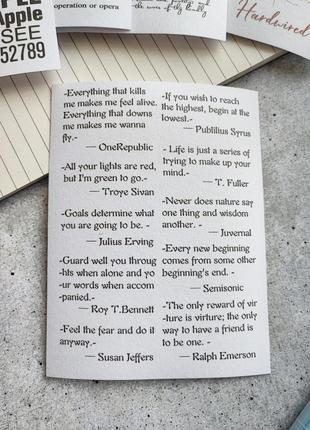 Apple
SEE
52789
operation or opera
Hardwired
-Everything that kills
me makes me feel alive.
Everything that downs
me makes me wanna
fly.-
— OneRepublic
-All your lights are red,
but I'm green to go.-
— Troye Sivan
-Goals determine what
you are going to be. -
— Julius Erving
-Guard well you throug
hts when alone and yo
ur words when accom
panied.-
— Roy T.Bennett
-Feel the fear and do it
anyway.-
— Susan Jeffers
-If you wish to reach
the highest, begin at the
lowest.-
— Publilius Syrus
- Life is just a series of
trying to make up your
mind.-
— T. Fuller
-Never does nature say
one thing and wisdom
another. -
— Juvernal
-Every new beginning
comes from some other
beginning's end. -
— Semisonic
-The only reward of vir
-ture is virture; the only
way to have a friend is
to be one. -
— Ralph Emerson